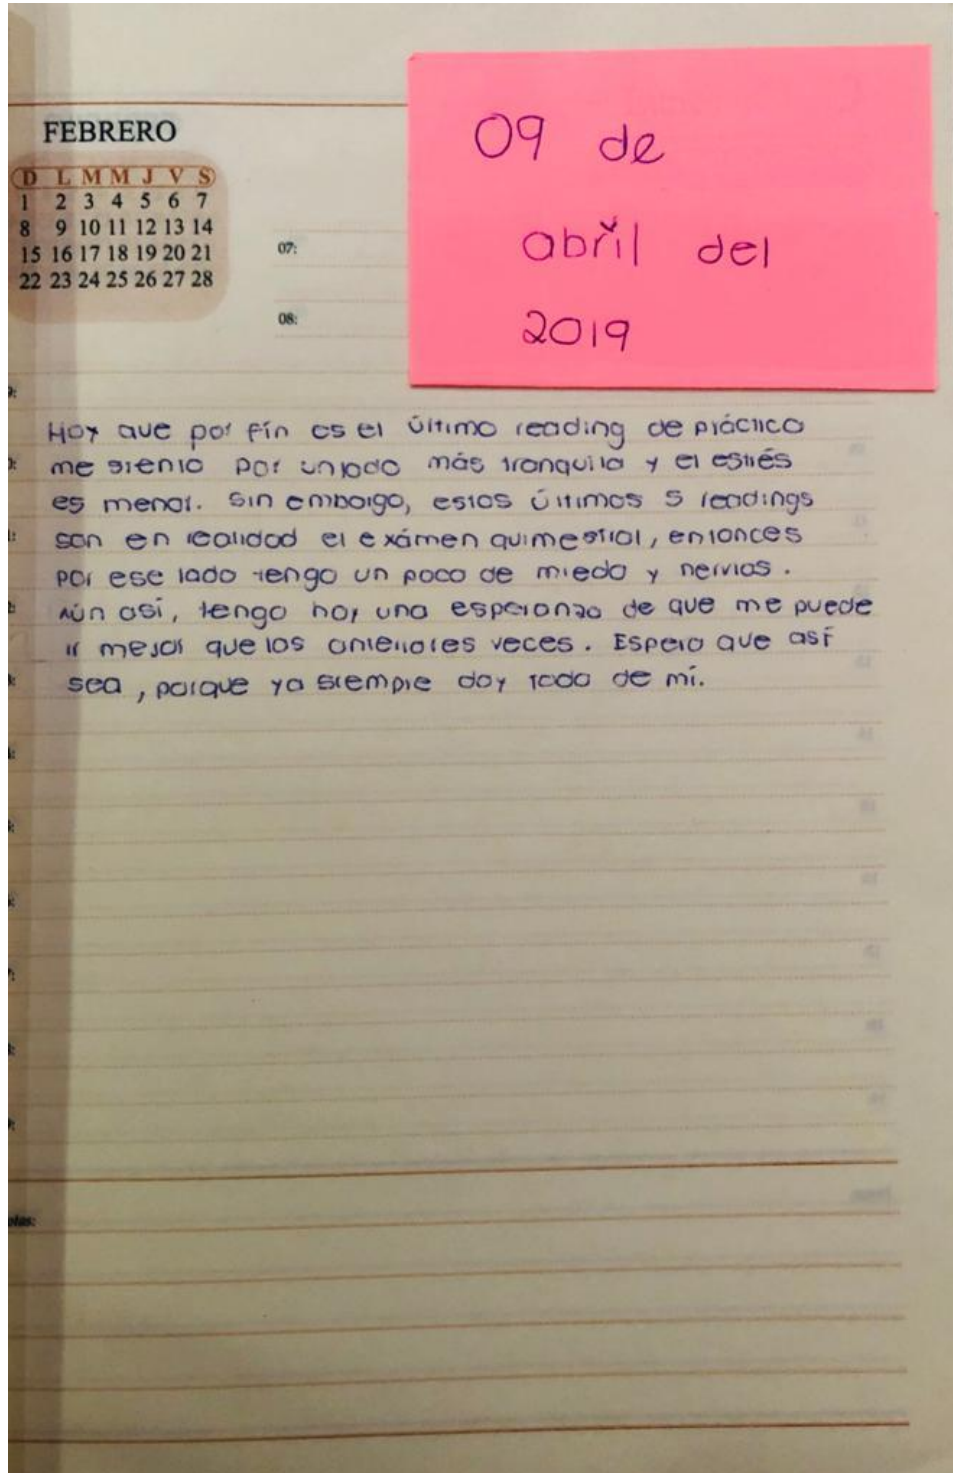 FEBRERO
D L M M J V S
1 2 3 4 5 6 7
8 9 10 11 12 13 14
15 16 17 18 19 20 21
22 23 24 25 26 27 28
07:
08:
09 de
abril del
2019
Hoy que por fín es el último reading de práctica
me siento por un lado más tranquila y el estrés
es menor. Sin embargo, estos últimos 5 readings
son en realidad el exámen quimestral, entonces
por ese lado tengo un poco de miedo y nervios.
Aún así, tengo hoy una esperanza de que me puede
ir mejor que los anteriores veces. Espero que así
sea, porque yo siempre doy todo de mí.
otas: